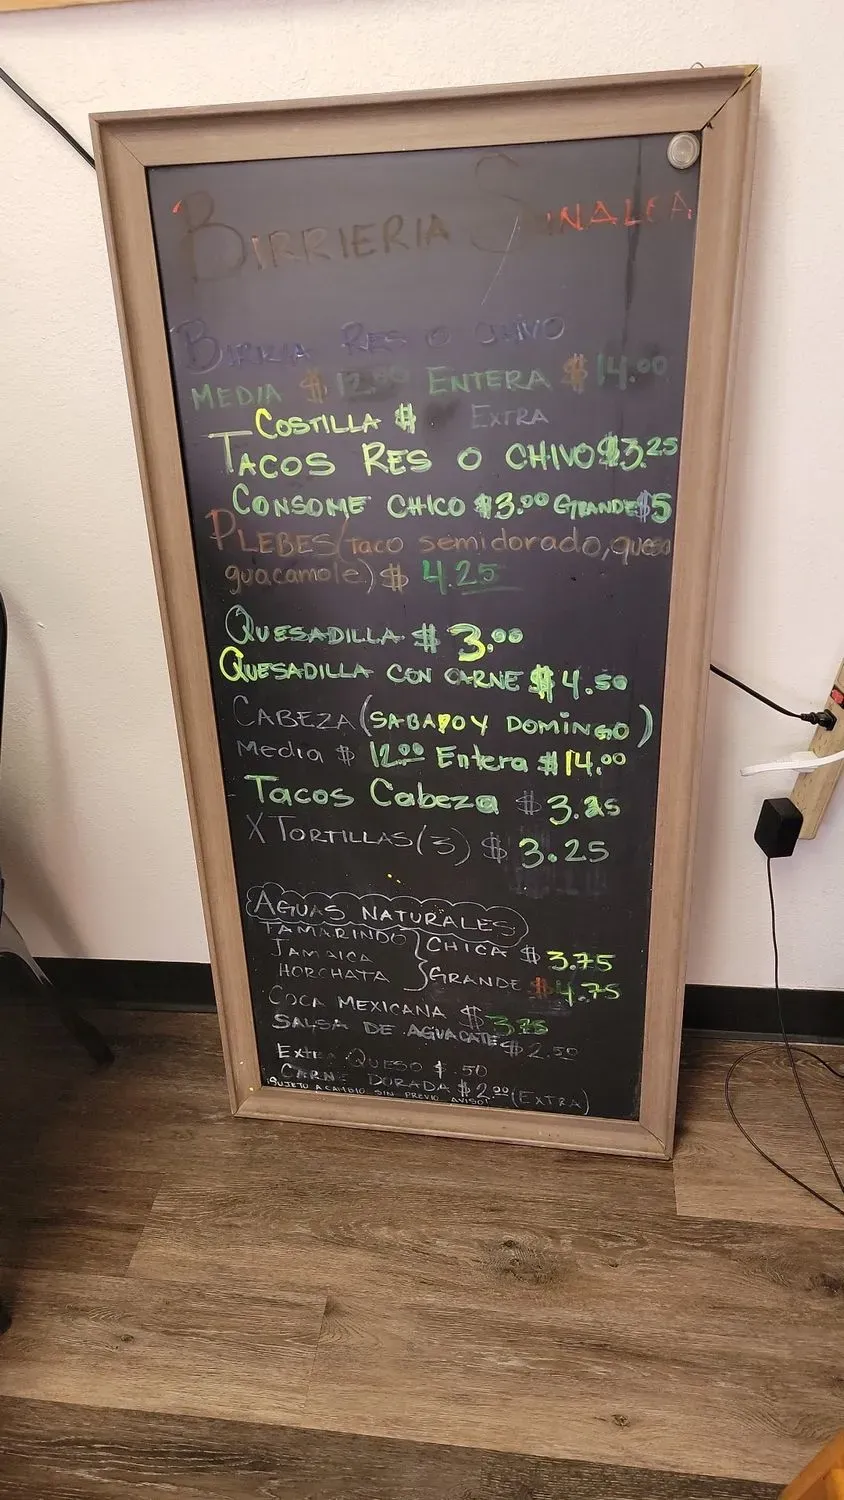 BIRRIERIA SINALOA
BIRRIA RES O CHIVO
MEDIA $12.00 ENTERA $14.00
COSTILLA $ EXTRA
TACOS RES O CHIVO $3.25
CONSOME CHICO $3.00 GRANDE $5
PLEBES (taco semidorado, queso
guacamole) $ 4.25
QUESADILLA $ 3.00
QUESADILLA CON CARNE $ 4.50
CABEZA (SABADO Y DOMINGO)
Media $ 12.00 Entera $14.00
Tacos Cabeza $ 3.25
X TORTILLAS (3) $ 3.25
AGUAS NATURALES
TAMARINDO
JAMAICA
HORCHATA
CHICA $ 3.75
GRANDE $4.75
COCA MEXICANA $ 3.75
SALSA DE AGUACATE $ 2.50
EXTRA QUESO $ .50
CARNE DORADA $2.00 (EXTRA)
¡SUJETO A CAMBIO SIN PREVIO AVISO!